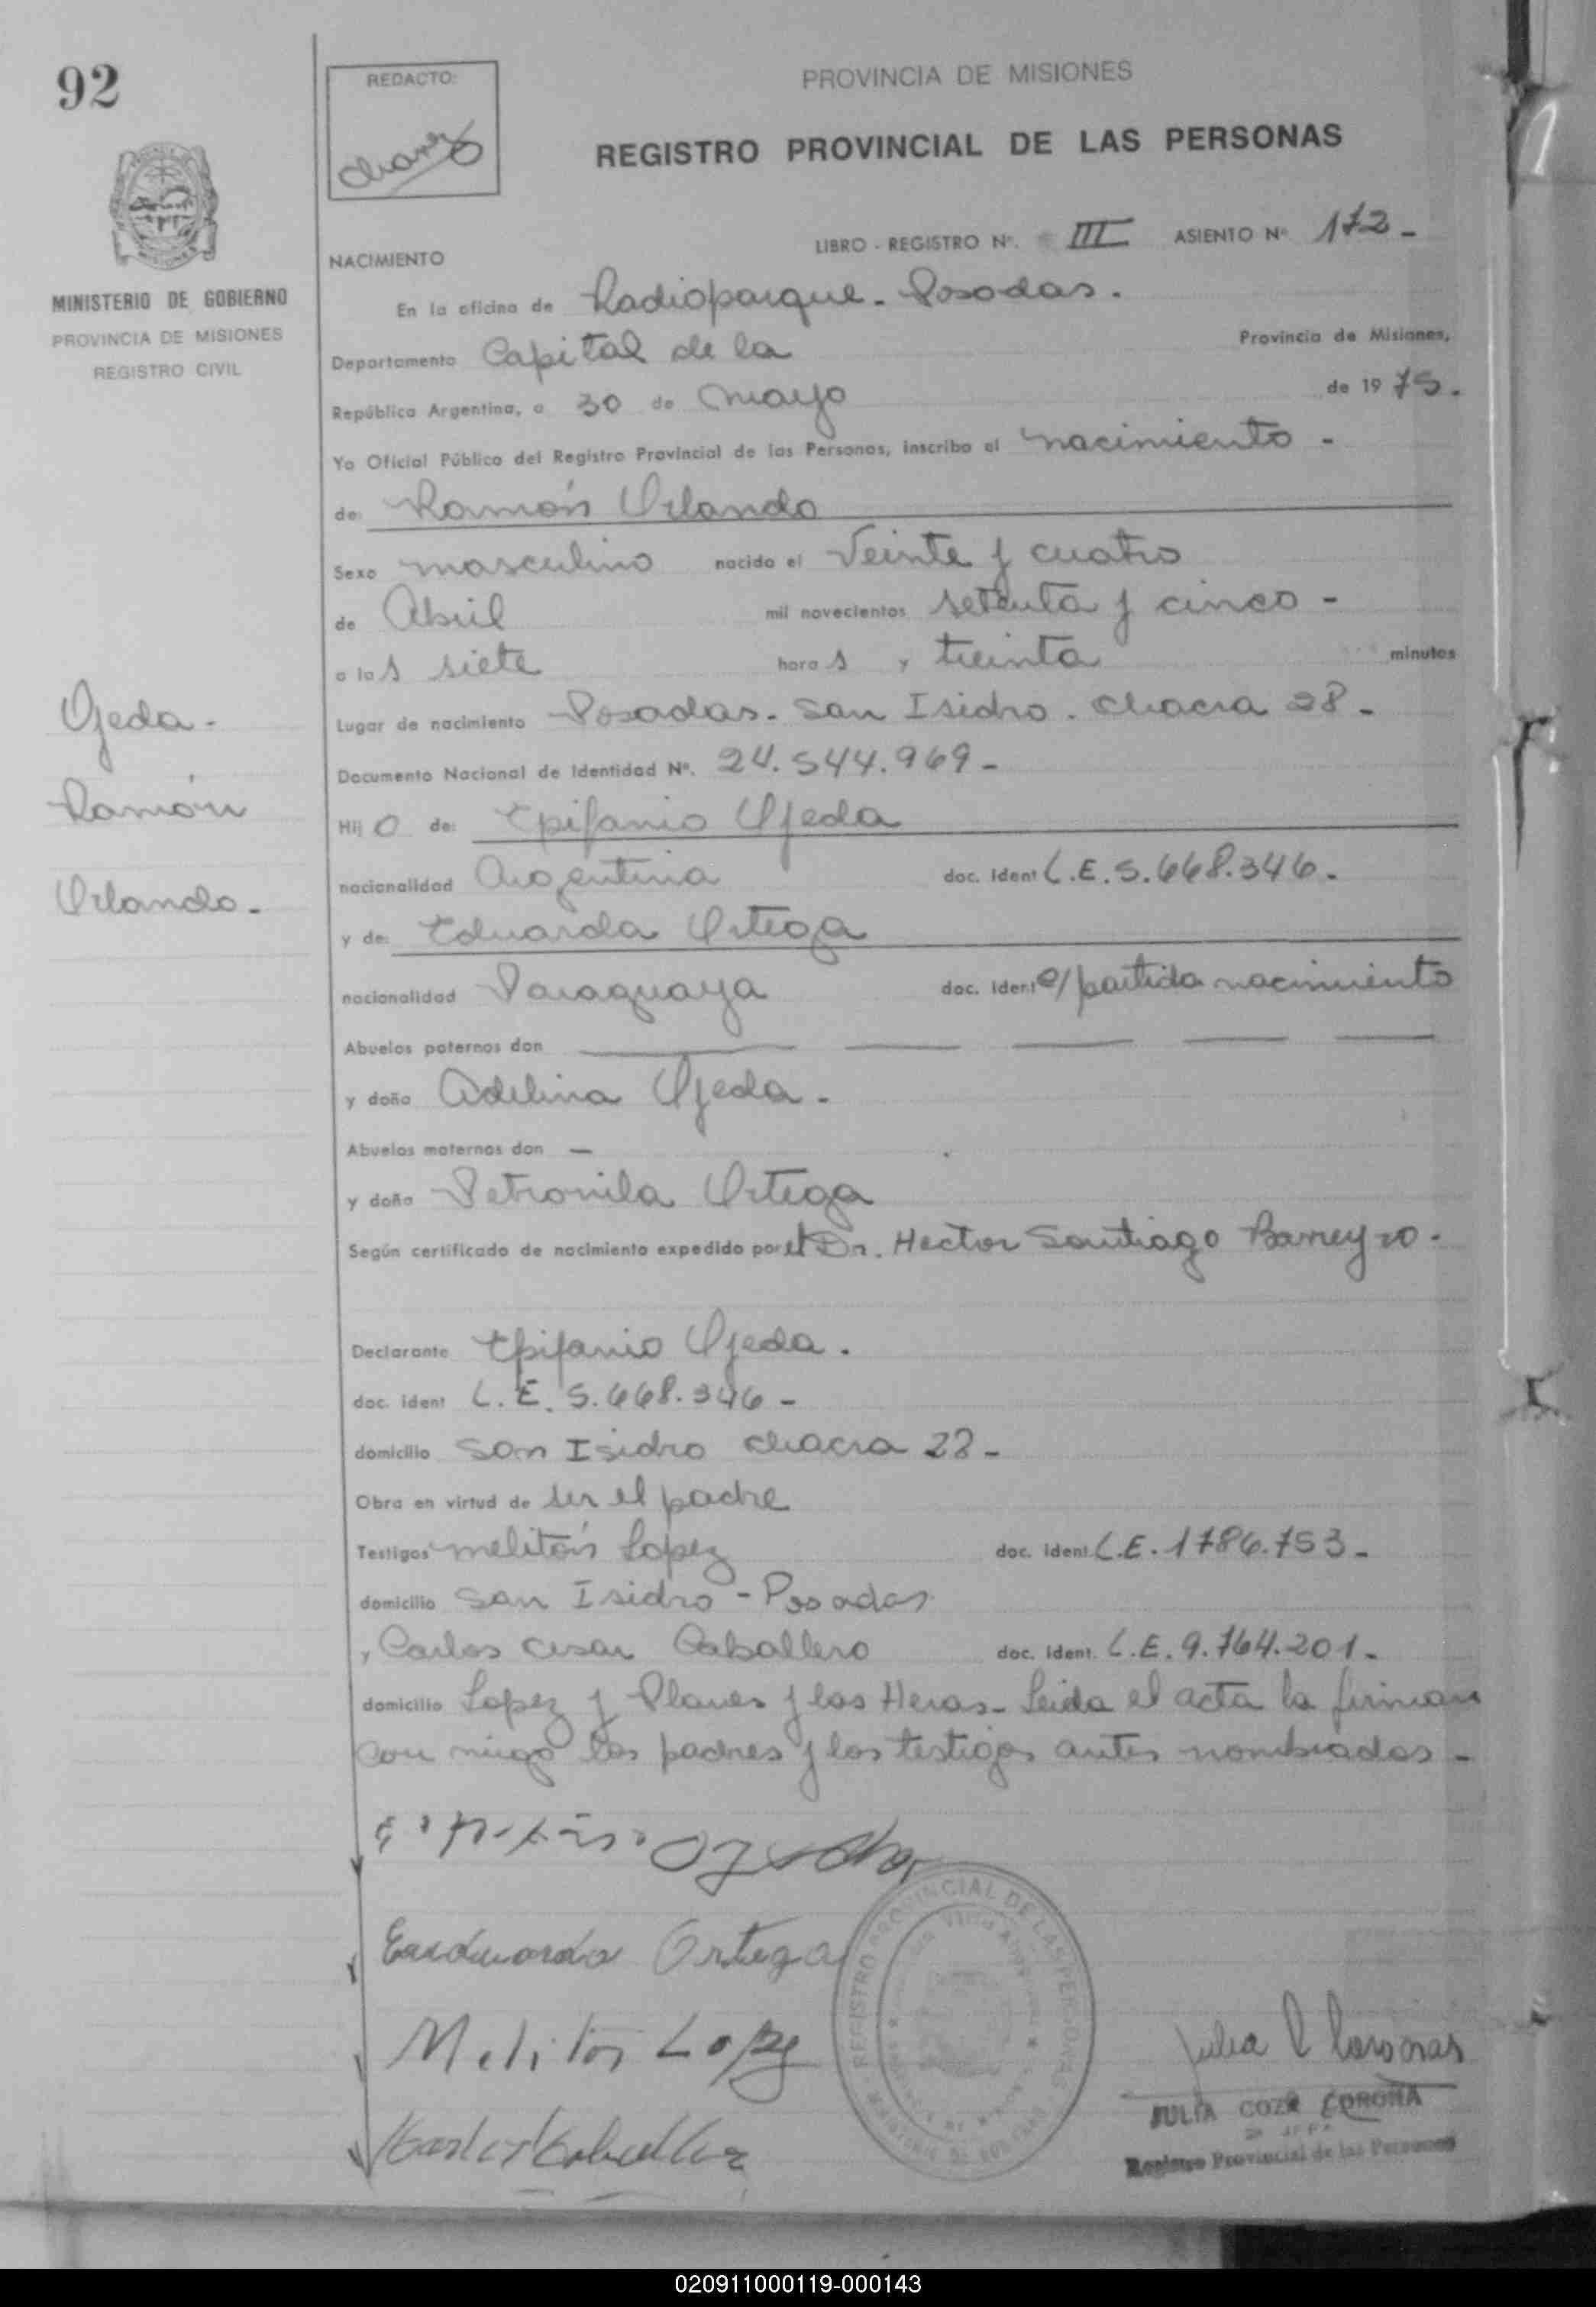 92
REDACTO:
PROVINCIA DE MISIONES
REGISTRO PROVINCIAL DE LAS PERSONAS
LIBRO - REGISTRO Nº. III ASIENTO Nº 172 -
NACIMIENTO
MINISTERIO DE GOBIERNO
PROVINCIA DE MISIONES
REGISTRO CIVIL
En la oficina de Radioparque - Posadas.
Departamento Capital de la Provincia de Misiones,
República Argentina, a 30 de Mayo de 1975.
Yo Oficial Público del Registro Provincial de las Personas, inscribo el nacimiento -
de: Ramón Orlando
Sexo masculino nacido el Veinte y cuatro
de Abril mil novecientos setenta y cinco -
a las siete horas y treinta minutos
Lugar de nacimiento Posadas - San Isidro - Chacra 28 -
Documento Nacional de Identidad Nº. 24.544.969 -
Hijo de: Epifanio Ojeda
nacionalidad Argentina doc. Ident L.E. 5.668.346 -
y de: Eduarda Ortega
nacionalidad Paraguaya doc. Ident c/ partida nacimiento
Abuelos paternos don —
y doña Adelina Ojeda -
Abuelos maternos don —
y doña Petronila Ortega
Según certificado de nacimiento expedido por el Dr. Hector Santiago Barreyro -
Declarante Epifanio Ojeda.
doc. ident L.E. 5.668.346 -
domicilio San Isidro chacra 28 -
Obra en virtud de ser el padre
Testigos Melitón Lopez doc. ident. L.E. 1786.753 -
domicilio San Isidro - Posadas
y Carlos Cesar Caballero doc. ident. L.E. 9.764.201 -
domicilio Lopez y Planes y las Heras - Leida el acta la firman
con migo los padres y los testigos antes nombrados -
Ojeda -
Ramón
Orlando -
Ojeda
Eurduarda Ortega
Meliton Lopez
REGISTRO PROVINCIAL DE LAS PERSONAS
JULIA COZR CORONA
Registro Provincial de las Personas
020911000119-000143